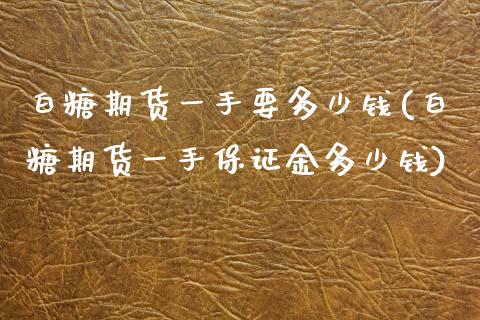 白糖期货一手要多少钱(白
糖期货一手保证金多少钱)